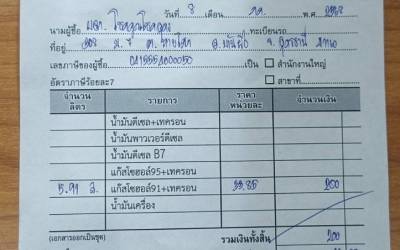 วันที่ 8 เดือน พ.ศ.
นามผู้ซื้อ ทะเบียนรถ
ที่อยู่ จ. อุดรธานี
เลขภาษีของผู้ซื้อ 0415551000050 เป็น สำนักงานใหญ่
อัตราภาษีร้อยละ7 สาขาที่
จำนวนลิตร รายการ ราคาหน่วยละ จำนวนเงิน
น้ำมันดีเซล+เทครอน
น้ำมันพาวเวอร์ดีเซล
น้ำมันดีเซล B7
แก๊สโซฮอล์95+เทครอน
5.91 ล. แก๊สโซฮอล์91+เทครอน 33.85 200
น้ำมันเครื่อง
(เอกสารออกเป็นชุด) รวมเงินทั้งสิ้น 200